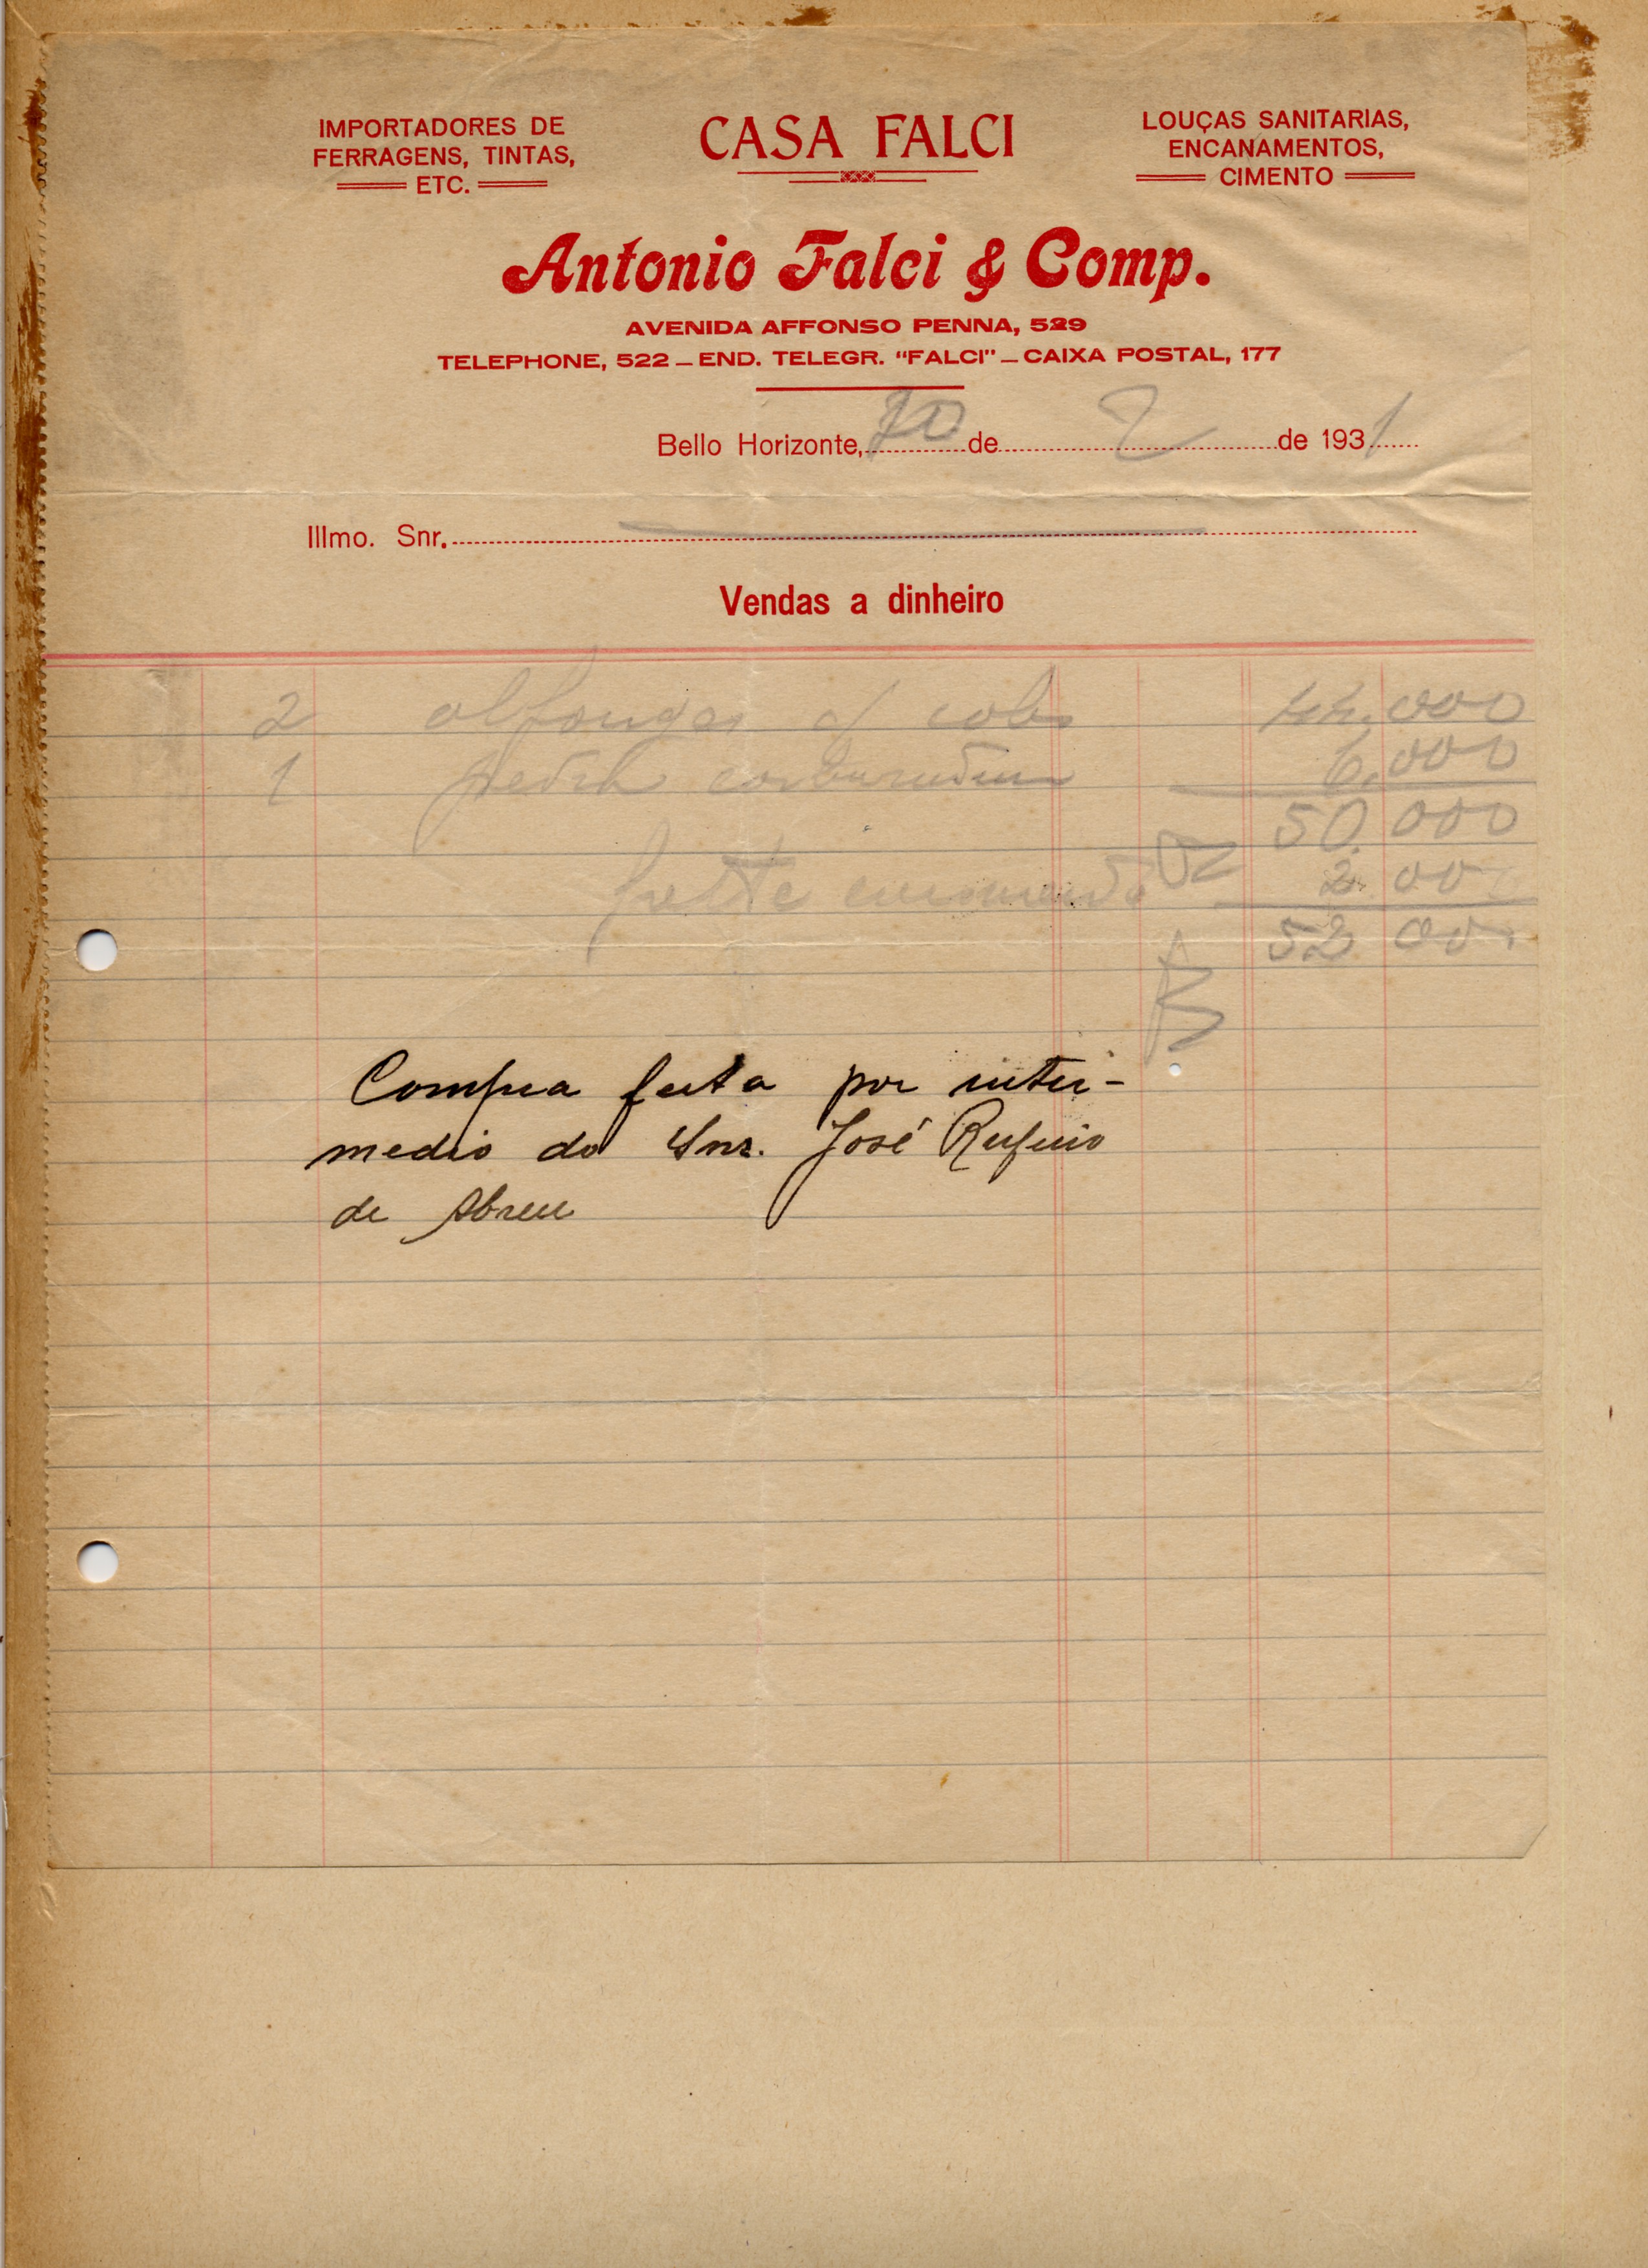 IMPORTADORES DE
FERRAGENS, TINTAS,
ETC.
CASA FALCI
LOUÇAS SANITARIAS,
ENCANAMENTOS,
CIMENTO
Antonio Falci & Comp.
AVENIDA AFFONSO PENNA, 529
TELEPHONE, 522 — END. TELEGR. "FALCI" — CAIXA POSTAL, 177
Bello Horizonte, de 2 de 1931
Illmo. Snr.
Vendas a dinheiro
2 c/ 44.000
1 pedra 6.000
50.000
2.000
52 000
Compra feita por inter-
medio do Snr. José Rufino
de Abreu